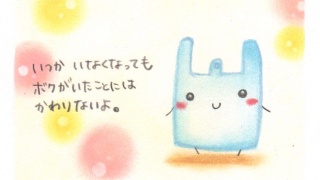 いつか いなくなっても
ボクがいたことには
かわりないよ。